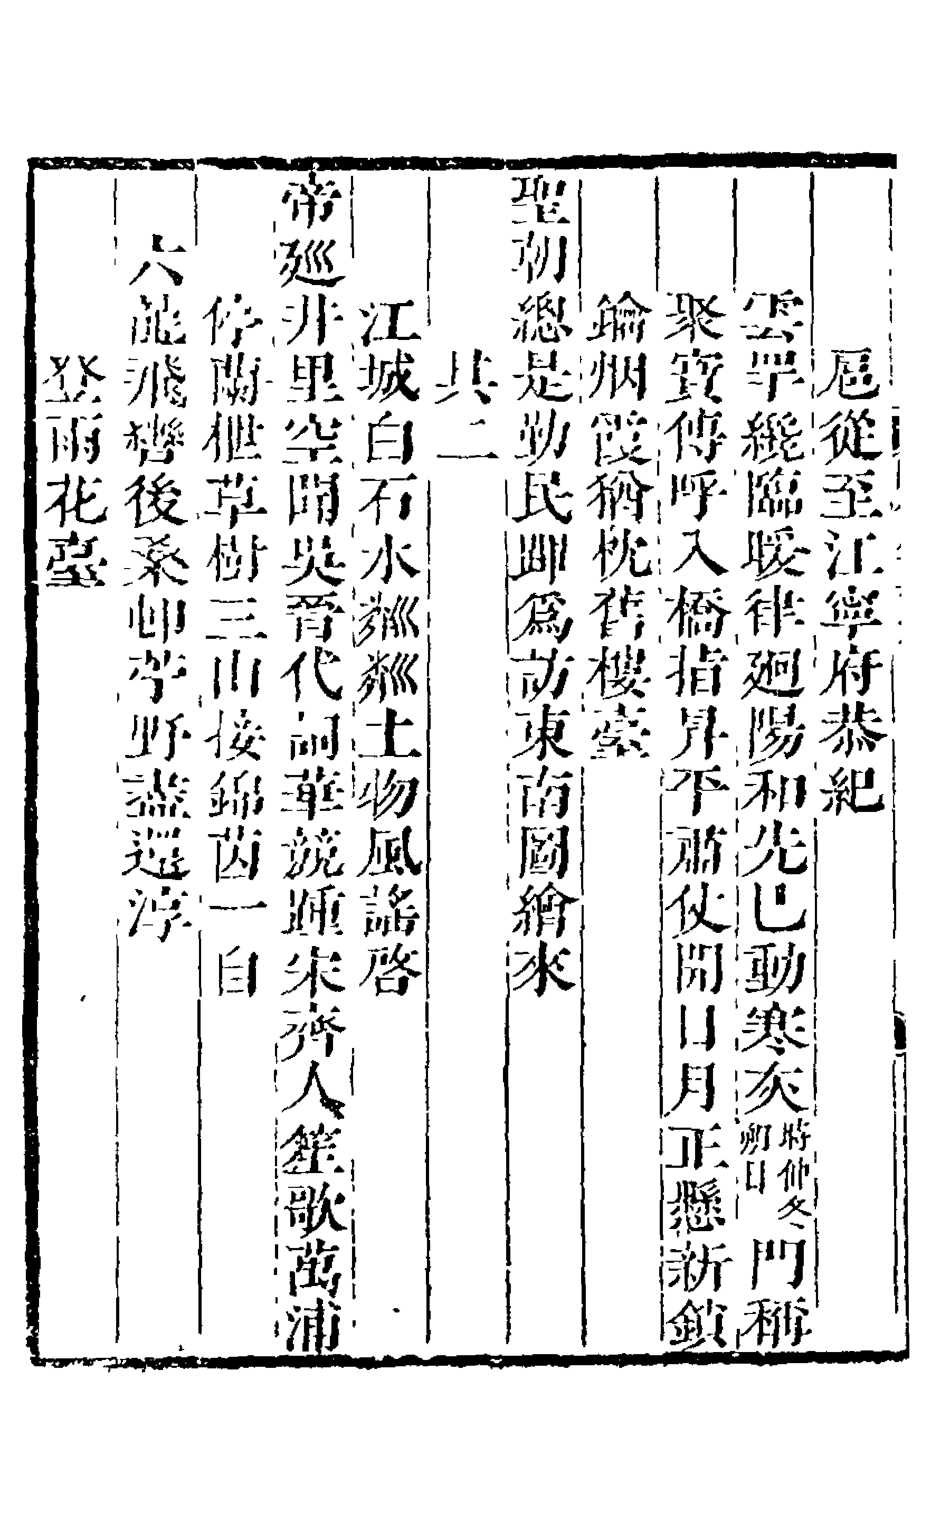 扈從至江寧府恭紀
雲罕纔臨暖律廻陽和先已動寒灰時仲冬朔日門稱
聚寶傳呼入橋指昇平肅仗開日月正懸新鎖
鑰烟霞猶枕舊樓臺
聖朝總是勤民即爲訪東南圖繪來
其二
江城白石水粼粼土物風謠啓
帝廵井里空聞吳晉代詞華競踵宋齊人笙歌萬浦
停蘭枻草樹三山接錦茵一自
六龍飛轡後桑〓苧野盡還淳
登雨花臺